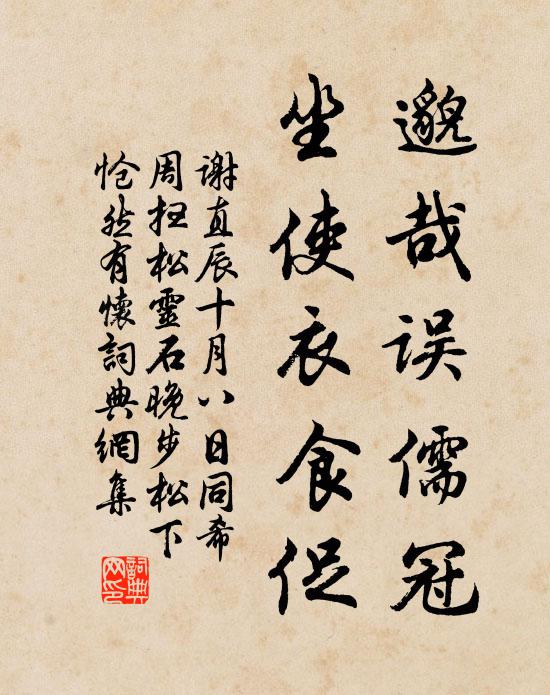 邈哉误儒冠
坐使衣食促
谢直辰十月八日同希
周扫松灵石晚步松下
怆然有懷詞典網集
詞典网印